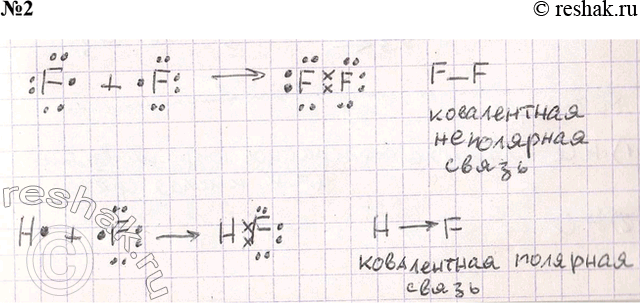 №2
© reshak.ru
:F· + ·F: → :F××F: F–F
ковалентная
неполярная
связь
H· + ·F: → H××F: H→F
ковалентная полярная
связь
© reshak.ru